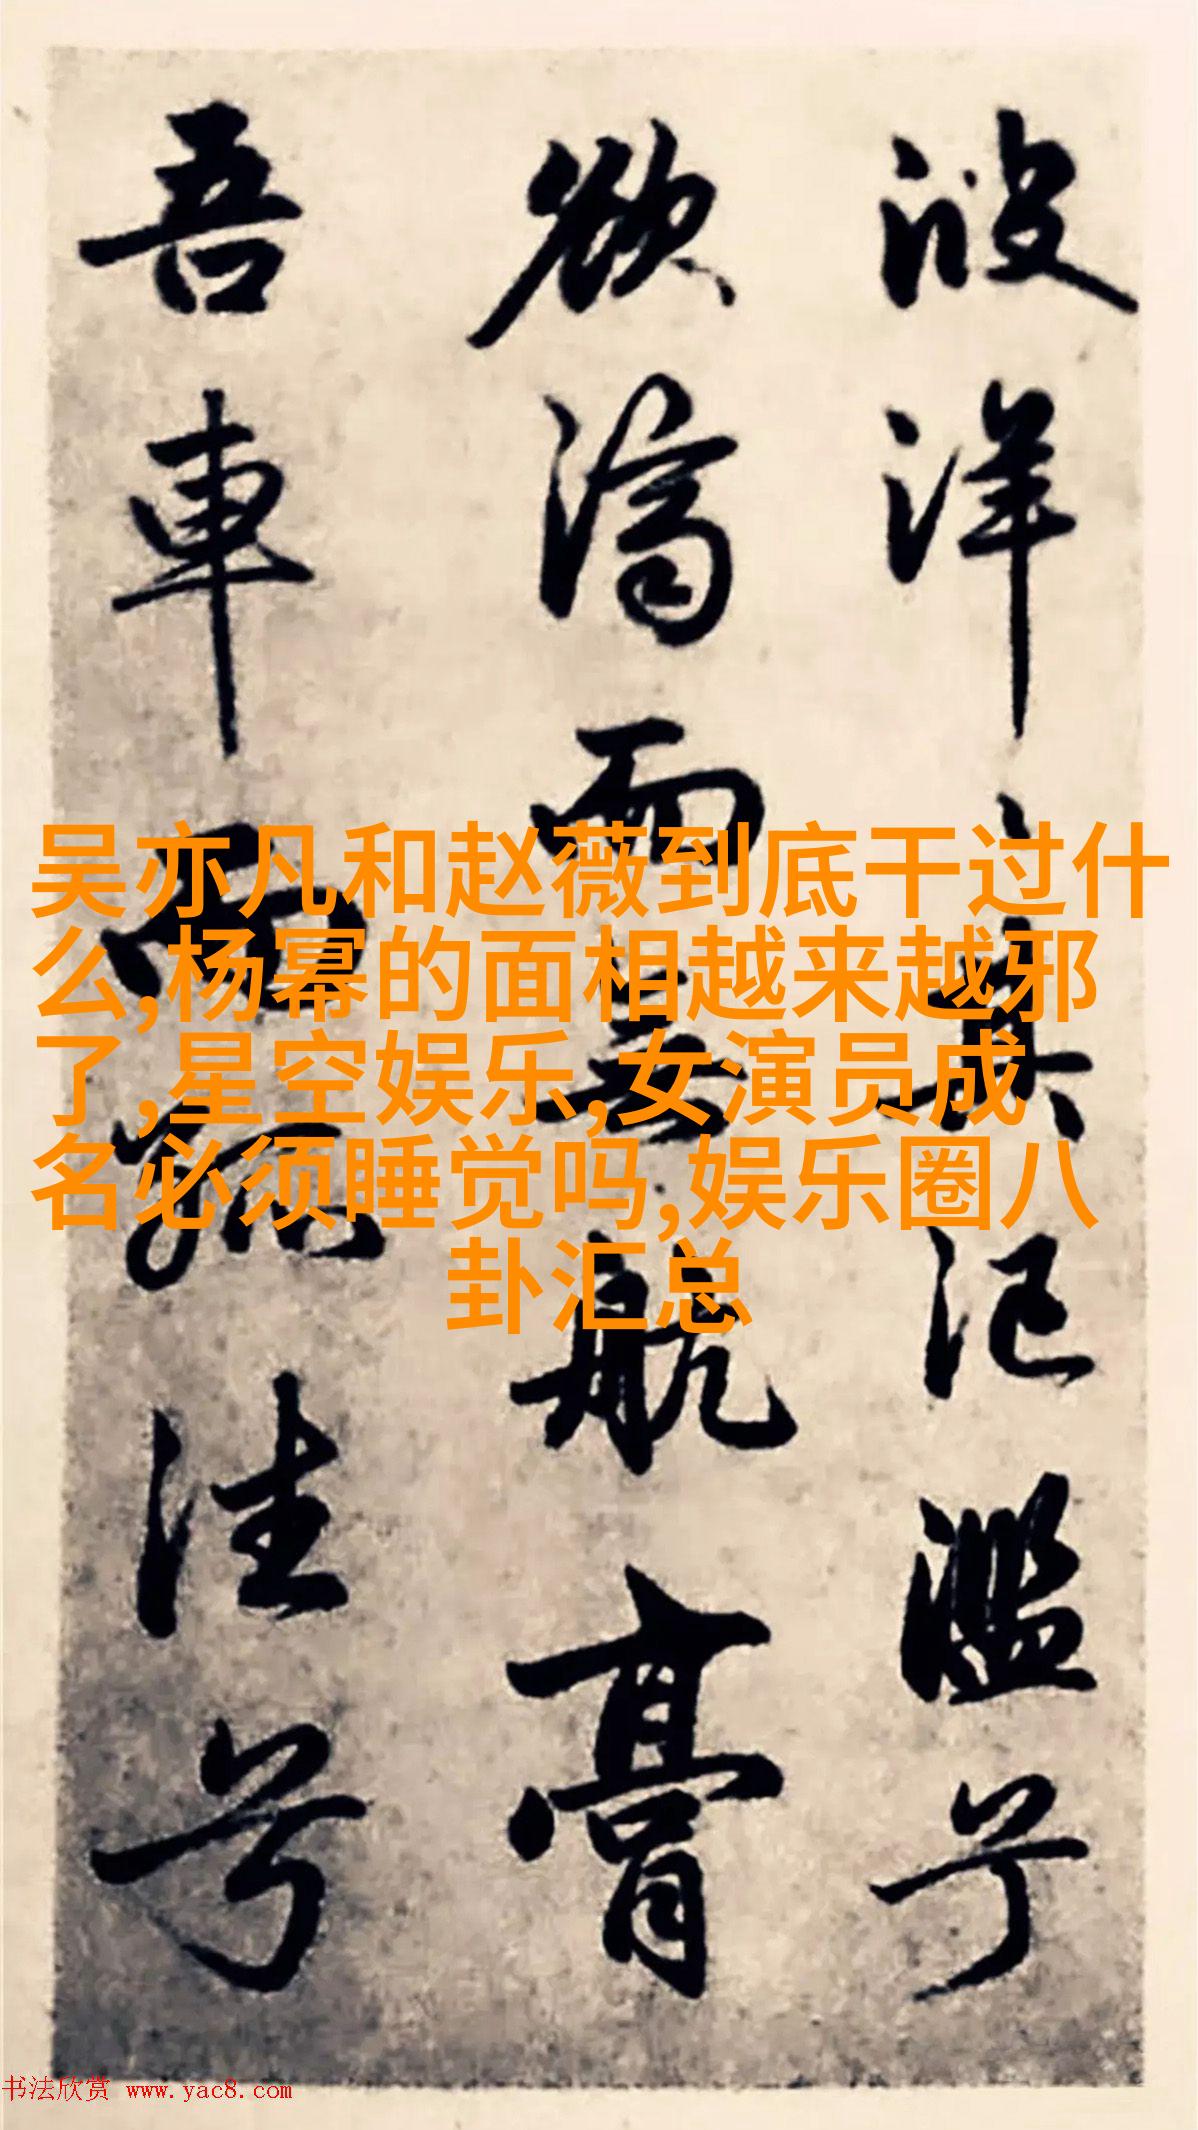 波洋其氾濫兮
欲濟而無航膏
吾車兮
吴亦凡和赵薇到底干过什
么,杨幂的面相越来越邪
了,星空娱乐,女演员成
名必须睡觉吗,娱乐圈八
卦汇总
书法欣赏 www.yac8.com